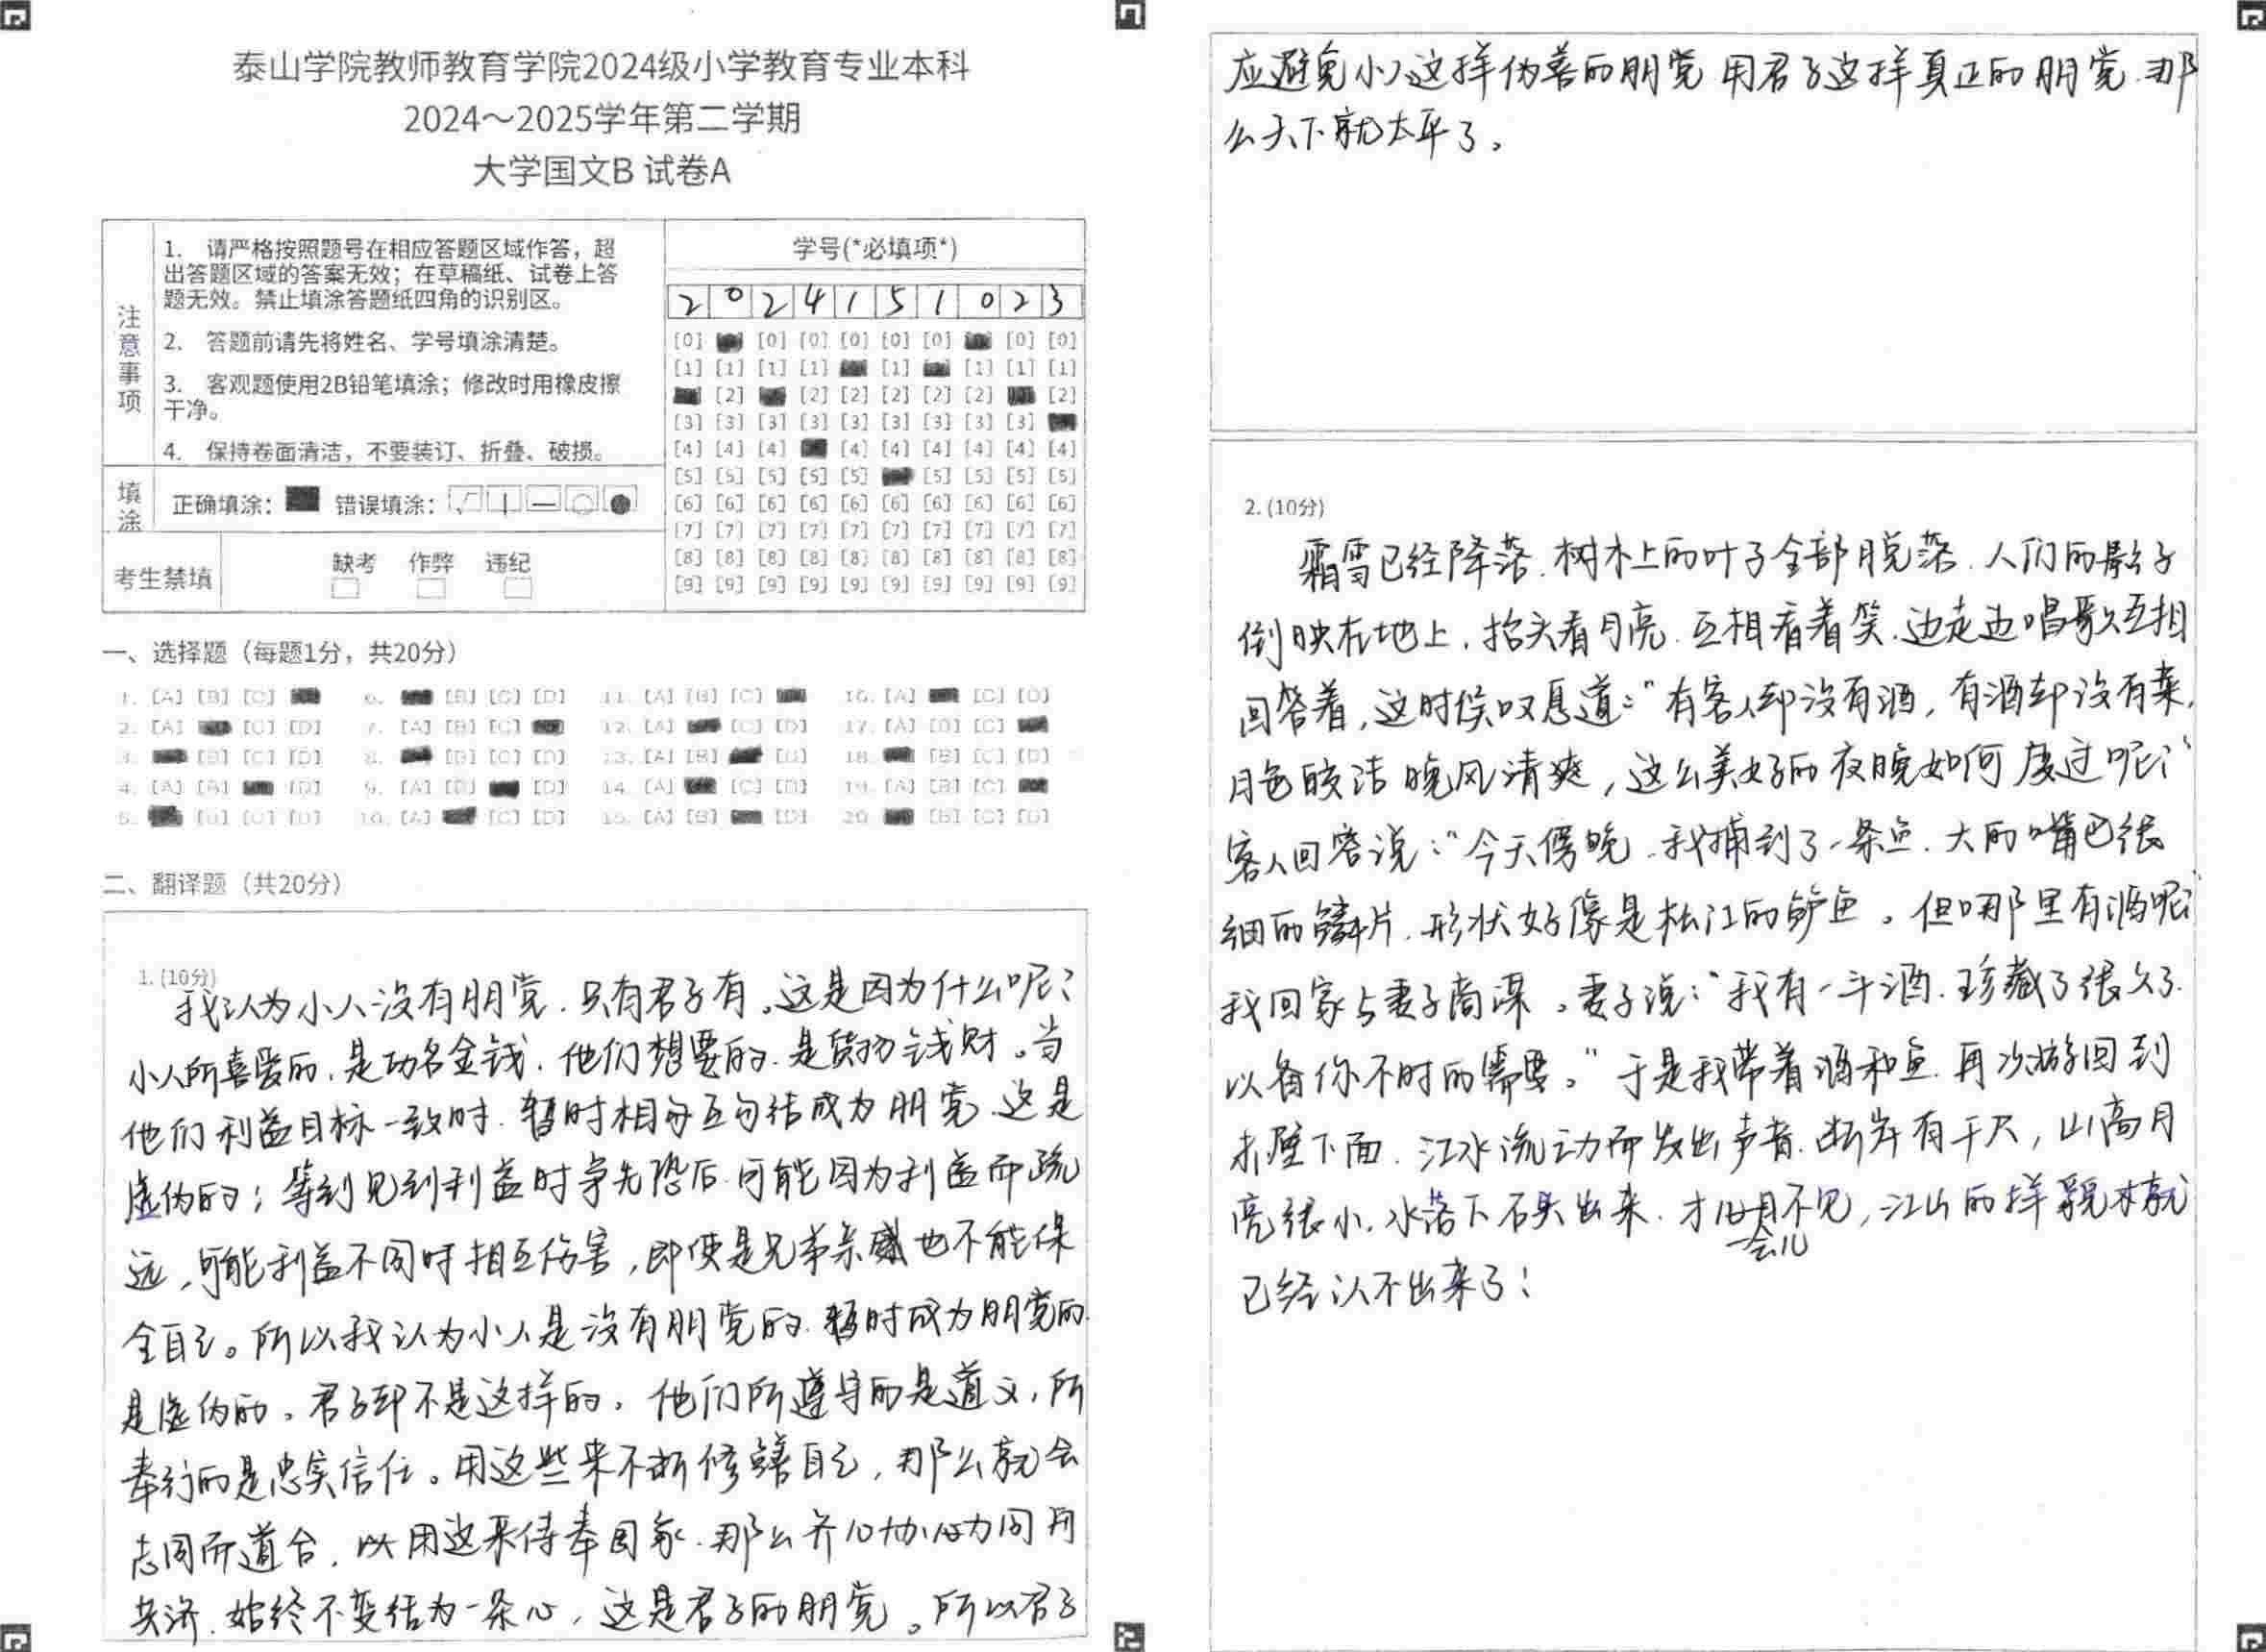 泰山学院教师教育学院2024级小学教育专业本科
2024～2025学年第二学期
大学国文B 试卷A
注意事项
1. 请严格按照题号在相应答题区域作答，超
出答题区域的答案无效；在草稿纸、试卷上答
题无效。禁止填涂答题纸四角的识别区。
2. 答题前请先将姓名、学号填涂清楚。
3. 客观题使用2B铅笔填涂；修改时用橡皮擦
干净。
4. 保持卷面清洁，不要装订、折叠、破损。
填涂
正确填涂： 错误填涂：
考生禁填
缺考 作弊 违纪
学号(*必填项*)
2 0 2 4 1 5 1 0 2 3
[0] [0] [0] [0] [0] [0] [0] [0]
[1] [1] [1] [1] [1] [1] [1] [1]
[2] [2] [2] [2] [2] [2] [2]
[3] [3] [3] [3] [3] [3] [3] [3] [3]
[4] [4] [4] [4] [4] [4] [4] [4] [4]
[5] [5] [5] [5] [5] [5] [5] [5] [5]
[6] [6] [6] [6] [6] [6] [6] [6] [6] [6]
[7] [7] [7] [7] [7] [7] [7] [7] [7] [7]
[8] [8] [8] [8] [8] [8] [8] [8] [8] [8]
[9] [9] [9] [9] [9] [9] [9] [9] [9] [9]
一、选择题（每题1分，共20分）
1. [A] [B] [C] 6. [B] [C] [D] 11. [A] [B] [C] 16. [A] [C] [D]
2. [A] [C] [D] 7. [A] [B] [C] 12. [A] [C] [D] 17. [A] [B] [C]
3. [B] [C] [D] 8. [B] [C] [D] 13. [A] [B] [D] 18. [B] [C] [D]
4. [A] [B] [D] 9. [A] [B] [D] 14. [A] [C] [D] 19. [A] [B] [C]
5. [B] [C] [D] 10. [A] [C] [D] 15. [A] [B] [D] 20. [B] [C] [D]
二、翻译题（共20分）
1. (10分)
我认为小人没有朋党，只有君子有。这是因为什么呢？
小人所喜爱的，是功名金钱，他们想要的，是货物钱财。当
他们利益目标一致时，暂时相互勾结成为朋党，这是
虚伪的；等到见到利益时争先恐后，可能因为利益而疏
远，可能利益不同时相互伤害，即使是兄弟亲戚也不能保
全自己。所以我认为小人是没有朋党的，暂时成为朋党的
是虚伪的。君子却不是这样的，他们所遵守的是道义，所
奉行的是忠实信任。用这些来不断修缮自己，那么就会
志同而道合，以用这来侍奉国家，那么齐心协心力同舟
共济，始终不变结为一条心，这是君子的朋党。所以君子
应避免小人这样伪善的朋党 用君子这样真正的朋党，那
么天下就太平了。
2. (10分)
霜雪已经降落，树木上的叶子全部脱落，人们的影子
倒映在地上，抬头看月亮，互相看着笑，边走边唱歌互相
回答着，这时候叹息道：“有客人却没有酒，有酒却没有菜，
月色皎洁 晚风清爽，这么美好的夜晚如何度过呢？”
客人回答说：“今天傍晚，我捕到了一条鱼，大的嘴巴很
细的鳞片，形状好像是松江的鲈鱼。但哪里有酒呢？”
我回家与妻子商谋。妻子说：“我有一斗酒，珍藏了很久了，
以备你不时的需要。”于是我带着酒和鱼，再次游回到
赤壁下面，江水流动而发出声音，断岸有千尺，山高月
亮很小，水落下石头出来，才 一会儿不见，江山的样貌就
已经认不出来了！